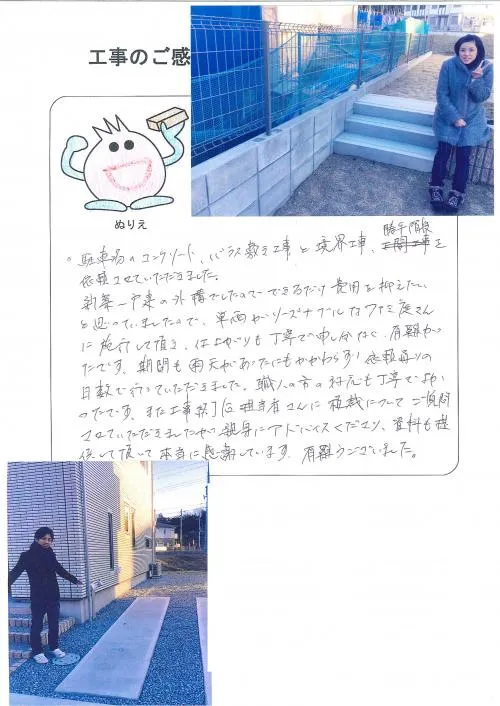 工事のご感
ぬりえ
。駐車場のコンクリート、バラス敷き工事と境界工事、勝手階段を
依頼させていただきました。
新築一戸建の外構でしたのでできるだけ費用を抑えたい
と思っていましたので、単価がリーズナブルなファミ庭さん
に施行して頂き、仕上がりも丁寧で申し分なく有難かっ
たです。期間も雨天があったにもかかわらず依頼通りの
日数で行っていただきました。職人の方の対応も丁寧でよか
ったです。また工事終了後担当者さんに植栽についてご質問
させていただきましたが親身にアドバイスくださり、資料も提
供して頂いて本当に感謝しています。有難うございました。